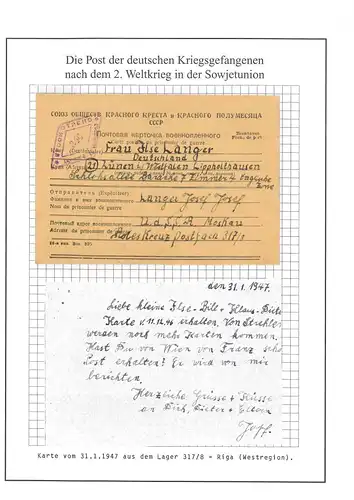 Die Post der deutschen Kriegsgefangenen
nach dem 2. Weltkrieg in der Sowjetunion
СОЮЗ ОБЩЕСТВ КРАСНОГО КРЕСТА и КРАСНОГО ПОЛУМЕСЯЦА
СССР
Почтовая карточка военнопленного
Carte postale du prisonnier de guerre
Frau Ilse Langer
Deutschland
(21) Lünen in Westfalen Lippholthausen
Baracke 7 Zimmer 4 Englische Zone
Отправитель (Expéditeur)
Фамилия и имя военнопленного
Nom du prisonnier de guerre
Langer Josef Josef
Почтовый адрес военнопленного
Adresse du prisonnier de guerre
U.d.S.S.R. Moskau
Rotes Kreuz Postfach 317/8
den 31.1.1947.
Liebe kleine Ilse-Bile + Klaus-Dieter
Karte v. 11.12.46 erhalten. Von
werden noch mehr Karten kommen.
Hast Du von Wien von Franz schon
Post erhalten? Er wird von mir
berichten.
Herzliche Grüsse + Küsse
an Dich, Dieter + Eltern
Karte vom 31.1.1947 aus dem Lager 317/8 - Riga (Westregion).